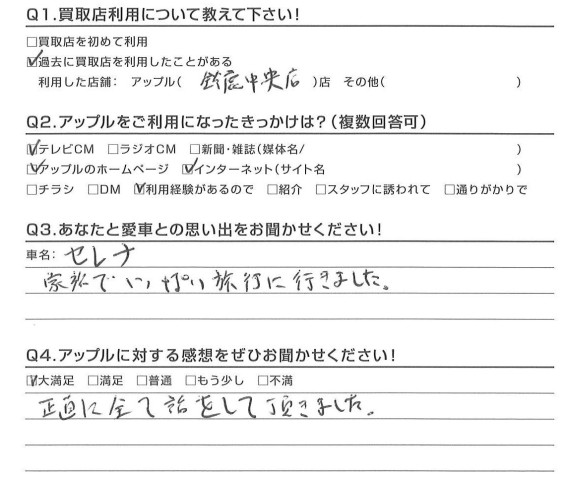 Q1.買取店利用について教えて下さい!
□買取店を初めて利用
☑過去に買取店を利用したことがある
利用した店舗: アップル( 鈴鹿中央店 )店 その他( )
Q2.アップルをご利用になったきっかけは?(複数回答可)
☑テレビCM □ラジオCM □新聞・雑誌(媒体名/ )
☑アップルのホームページ ☑インターネット(サイト名 )
□チラシ □DM ☑利用経験があるので □紹介 □スタッフに誘われて □通りがかりで
Q3.あなたと愛車との思い出をお聞かせください!
車名: セレナ
家族でいっぱい旅行に行きました。
Q4.アップルに対する感想をぜひお聞かせください!
☑大満足 □満足 □普通 □もう少し □不満
正直に全て話をして頂きました。